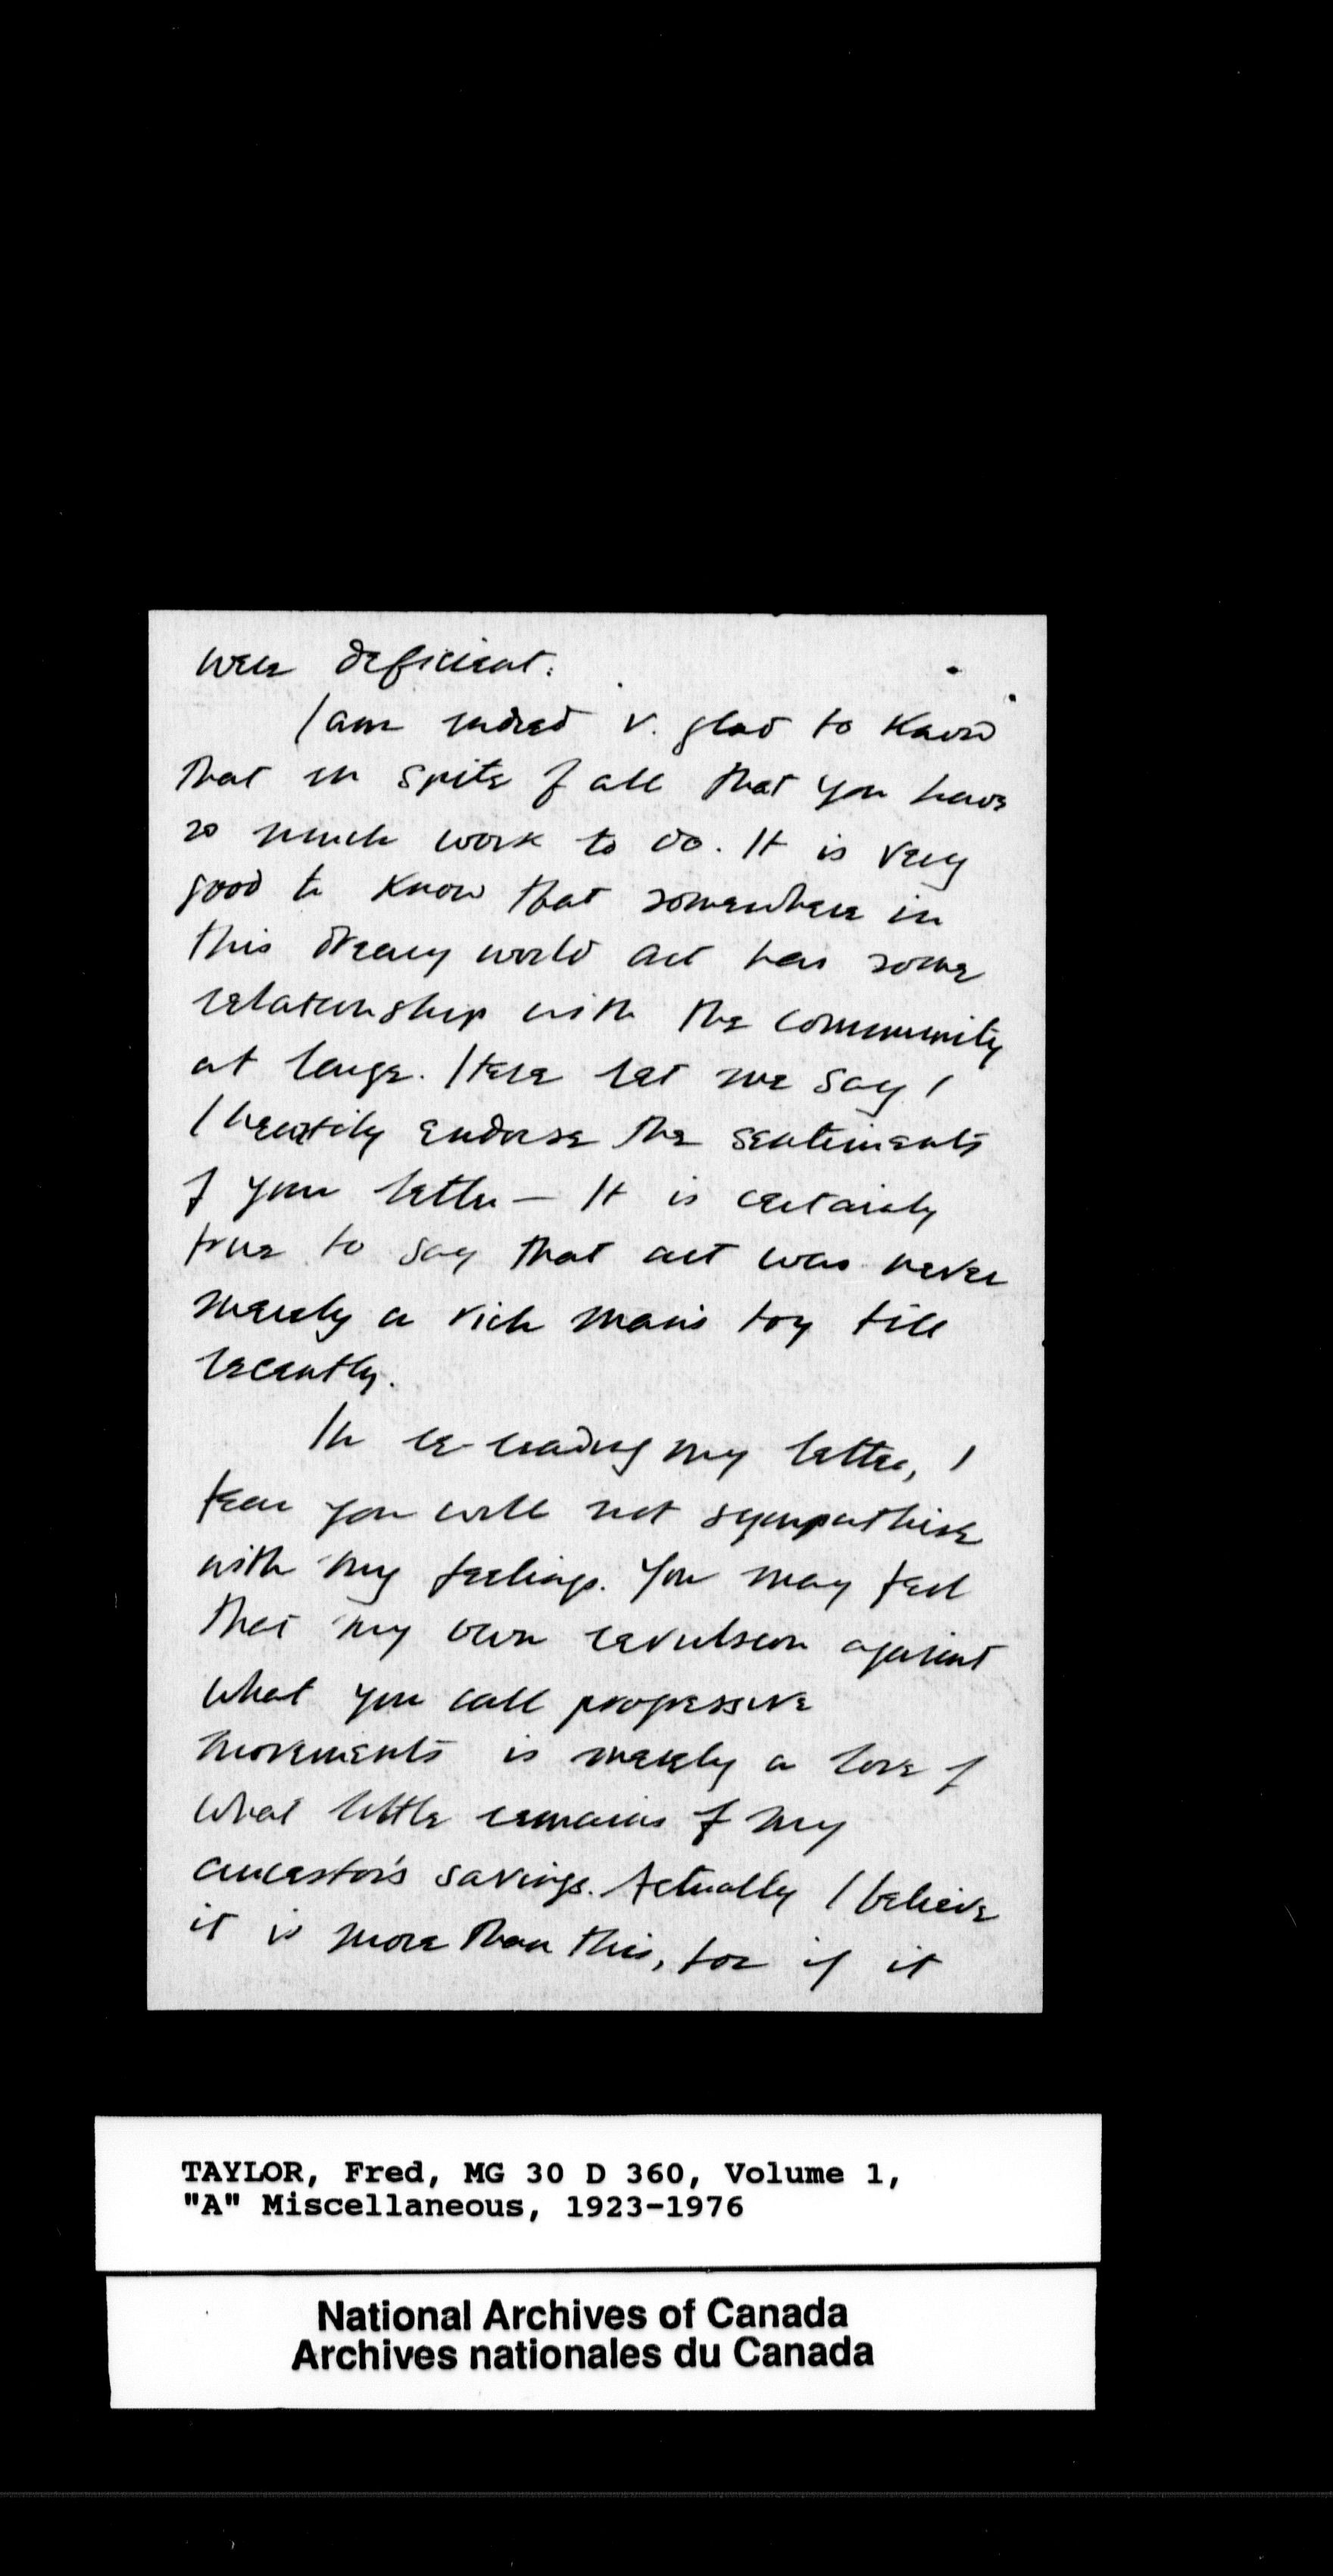 were deficient.
I am indeed v. glad to know
that in spite of all that you have
so much work to do. It is very
good to know that somewhere in
this dreary world art has some
relationship with the community
at large. Here let me say I
I heartily endorse the sentiments
of your letter — It is certainly
true to say that art was never
merely a rich man's toy till
recently.
In re-reading my letter, I
fear you will not sympathise
with my feelings. You may feel
that my own revulsion against
what you call progressive
movements is merely a love of
what little remains of my
ancestor's savings. Actually I believe
it is more than this, for if it
TAYLOR, Fred, MG 30 D 360, Volume 1,
"A" Miscellaneous, 1923-1976
National Archives of Canada
Archives nationales du Canada